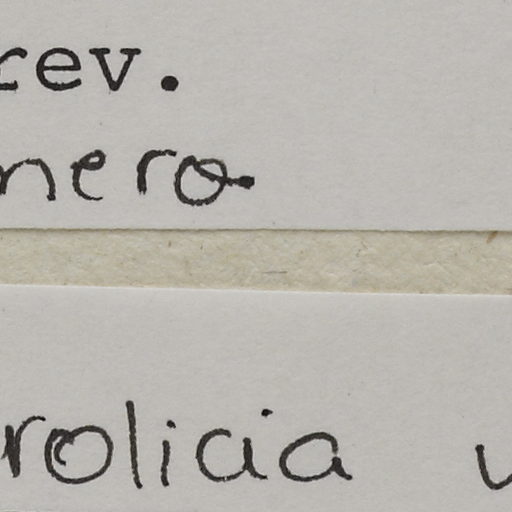 rev.
nera
rolicia v